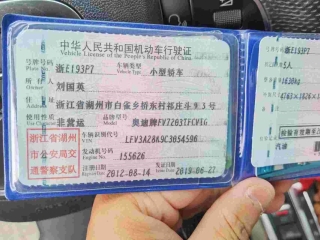 中华人民共和国机动车行驶证
Vehicle License of the People's Republic of China
号牌号码 浙E193P7 车辆类型 小型轿车
Plate No. Vehicle Type
所有人 刘国英
Owner
住址 浙江省湖州市白雀乡
Address
使用性质 非营运 品牌型号 奥迪牌FV7203TFCVTG
Use Character Model
浙江省湖州
市公安局交
通警察支队
车辆识别代号 LFV3A28K9C3054596
VIN
发动机号码 155626
Engine No.
注册日期 2012-08-14 发证日期 2019-06-27
Register Date Issue Date
浙E193P7
5人
1630kg
汽油